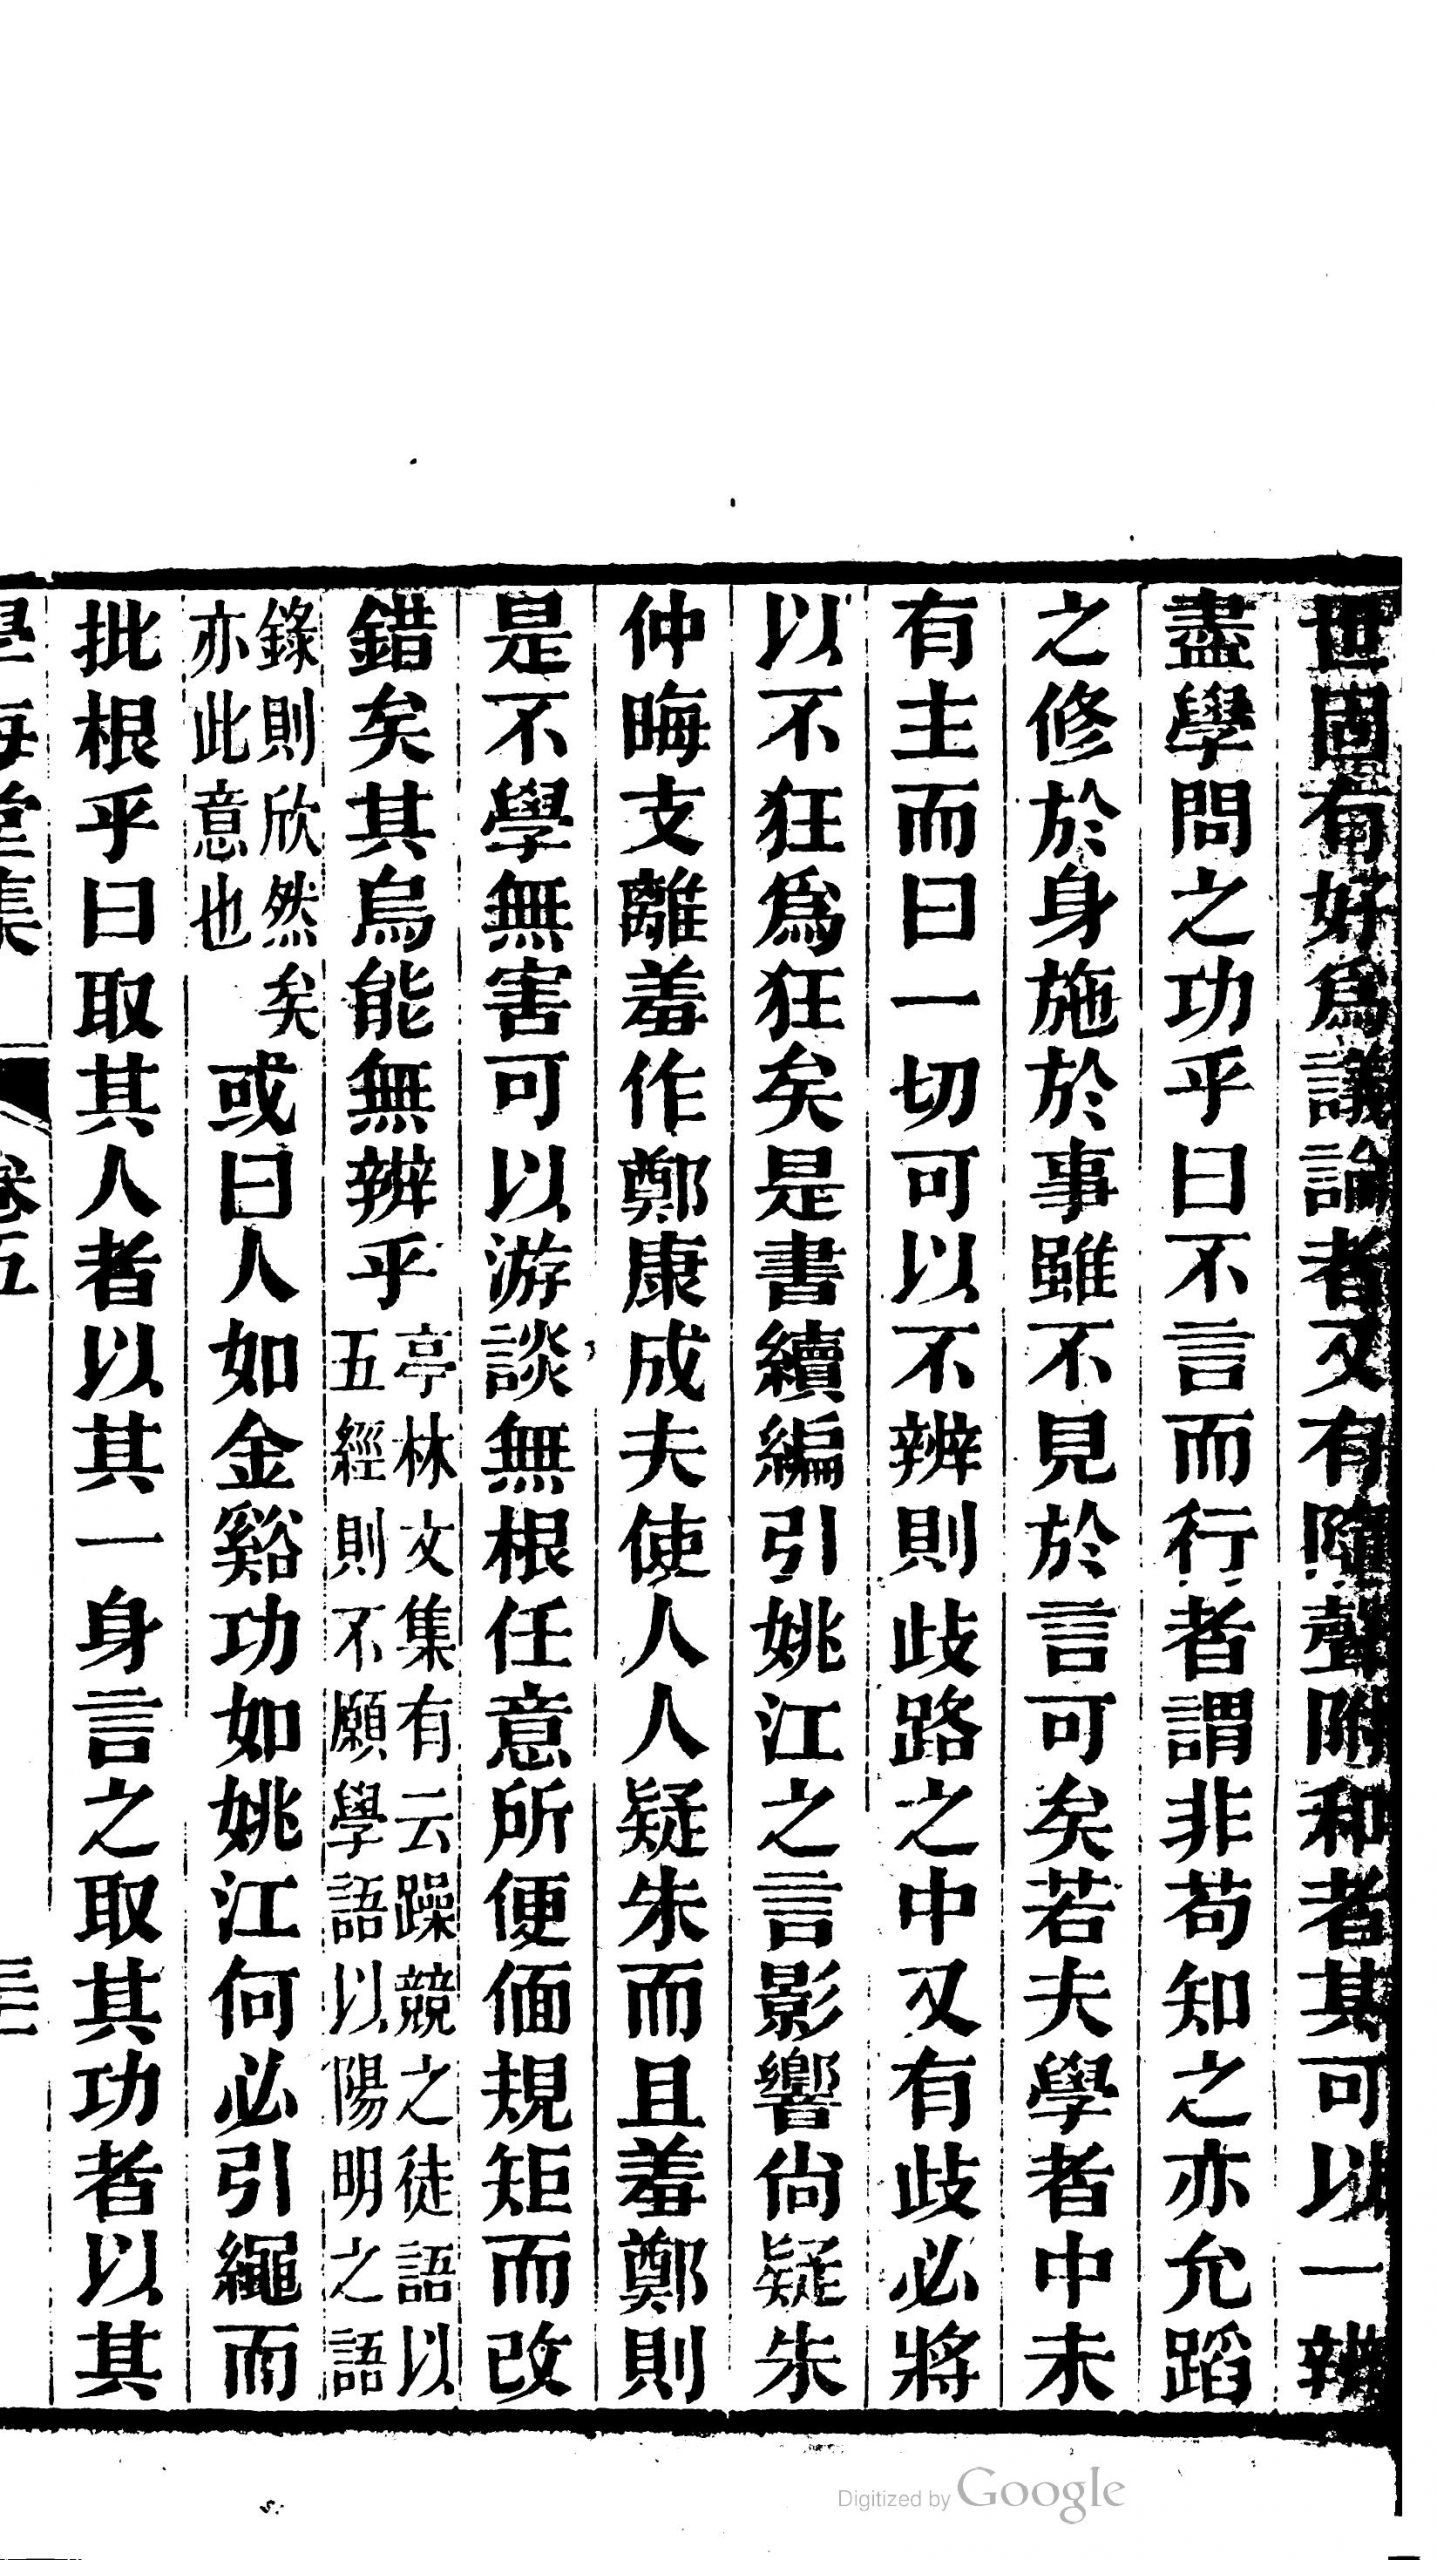 世固有好爲議論者又有隨聲附和者其可以一辨
盡學問之功乎曰不言而行者謂非苟知之亦允蹈
之修於身施於事雖不見於言可矣若夫學者中未
有主而曰一切可以不辨則歧路之中又有歧必將
以不狂爲狂矣是書續編引姚江之言影響尙疑朱
仲晦支離羞作鄭康成夫使人人疑朱而且羞鄭則
是不學無害可以游談無根任意所便偭規矩而改
錯矣其烏能無辨乎亭林文集有云躁競之徒語以五經則不願學語以陽明之語
錄則欣然矣亦此意也或曰人如金谿功如姚江何必引繩而
批根乎曰取其人者以其一身言之取其功者以其
學海堂集 卷五 三三
Digitized by Google